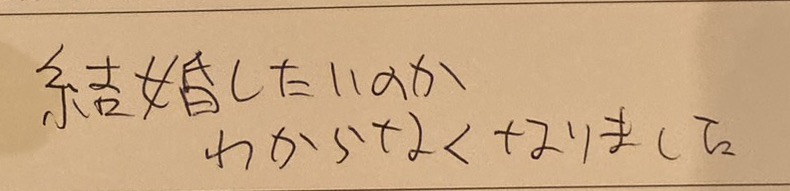 結婚したいのか
わからなくなりました